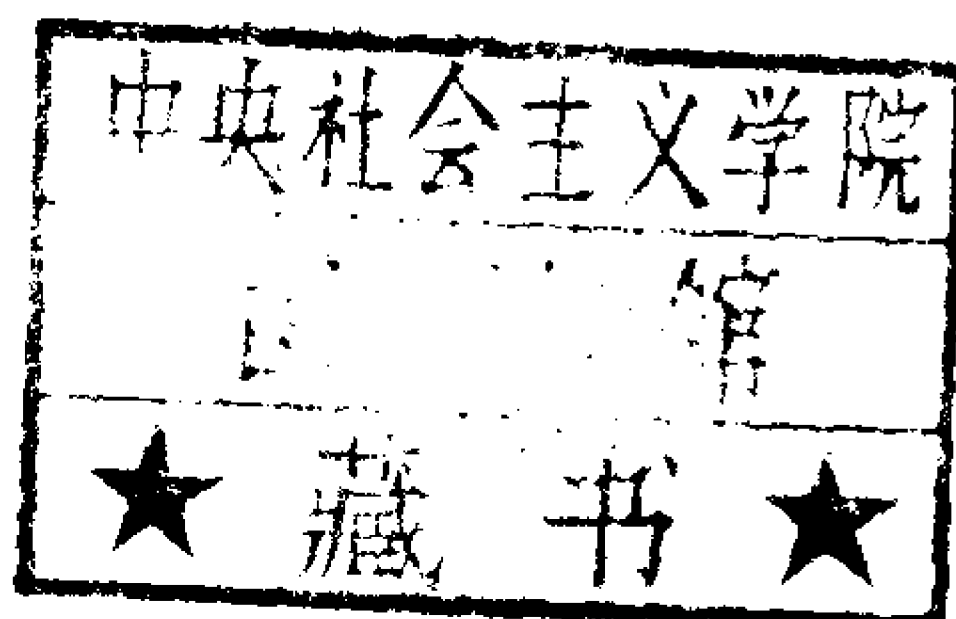 中央社会主义学院
馆
★藏书★